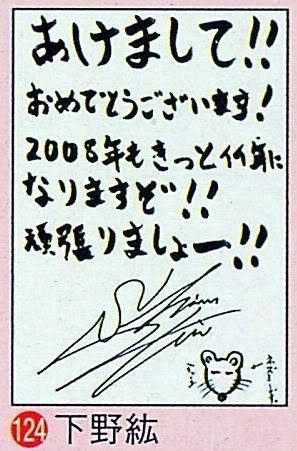 あけまして!!
おめでとうございます!
2008年もきっとイイ年に
なりますぞ!!
頑張りましょー!!
124 下野紘